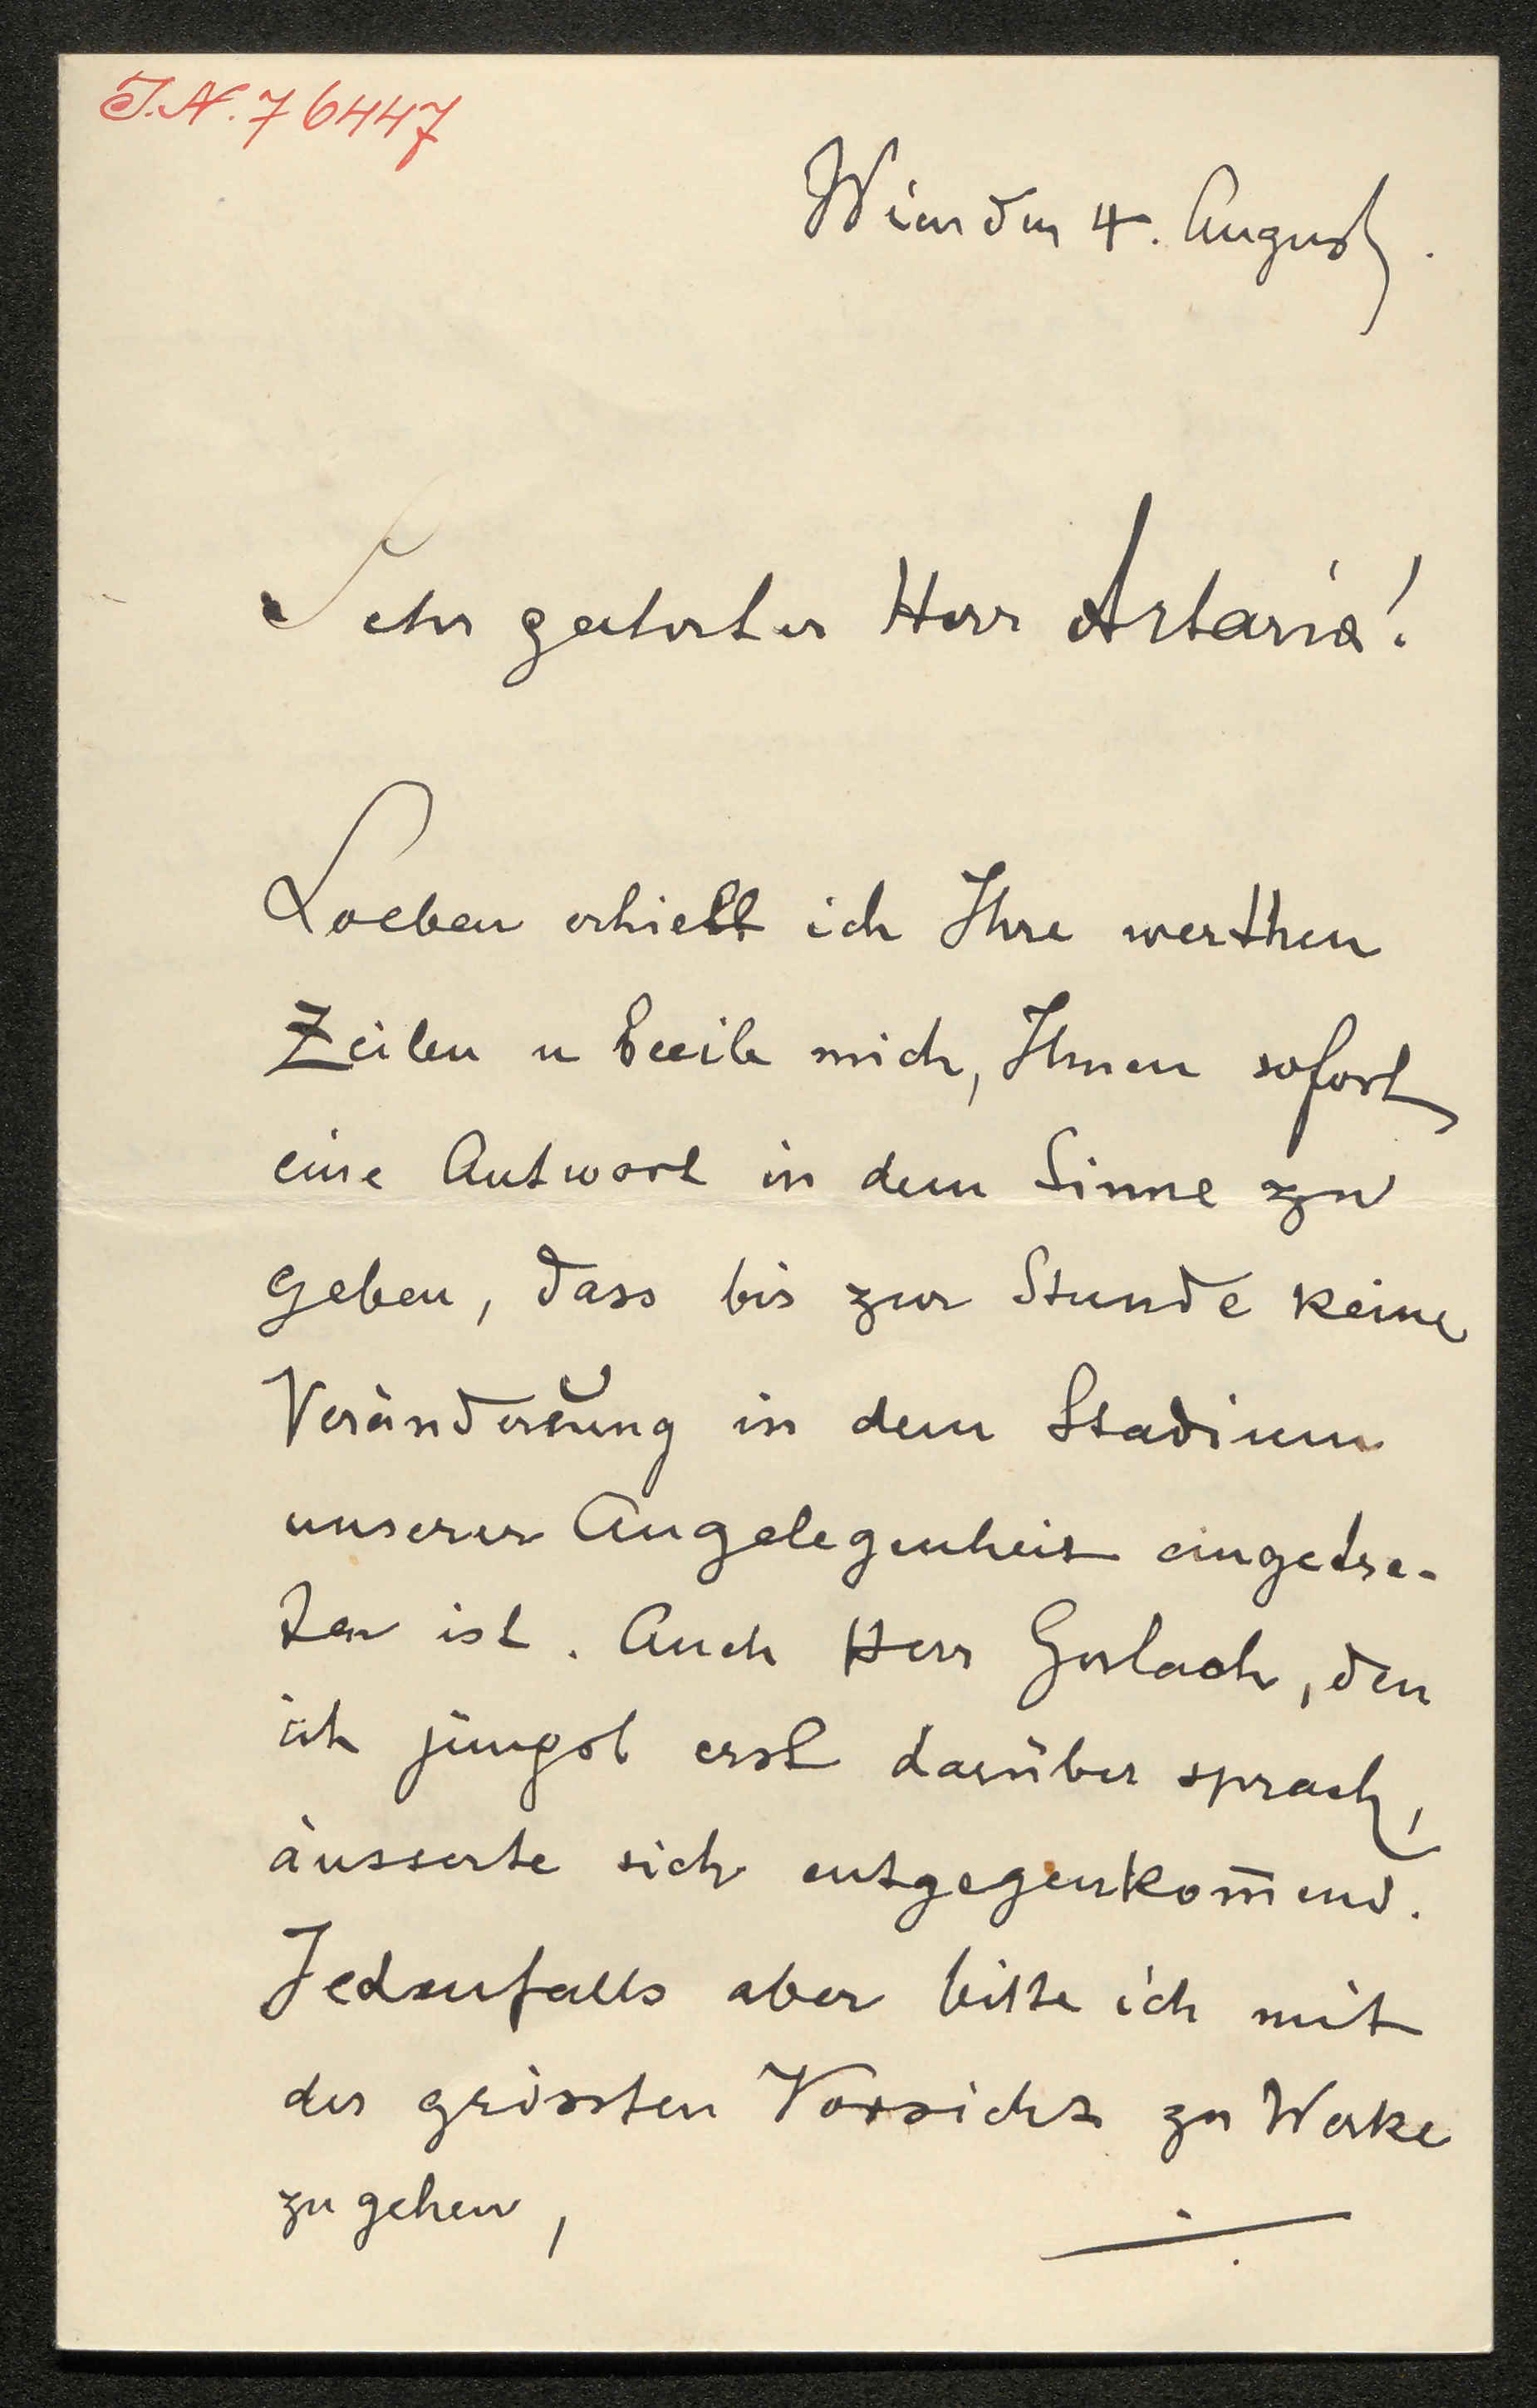 I.N. 76447
Wien den 4. August.
Sehr geehrter Herr Artaria!
Soeben erhielt ich Ihre werthen
Zeilen u beeile mich, Ihnen sofort
eine Antwort in dem Sinne zu
geben, dass bis zur Stunde keine
Veränderung in dem Stadium
unserer Angelegenheit eingetre-
ten ist. Auch Herr Gerlach, den
ich jüngst erst darüber sprach,
äusserte sich entgegenkom̅end.
Jedenfalls aber bitte ich mit
der grössten Vorsicht zu Werke
zu gehen,